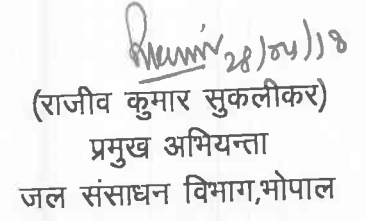 28/04/18
(राजीव कुमार सुकलीकर)
प्रमुख अभियन्ता
जल संसाधन विभाग,भोपाल